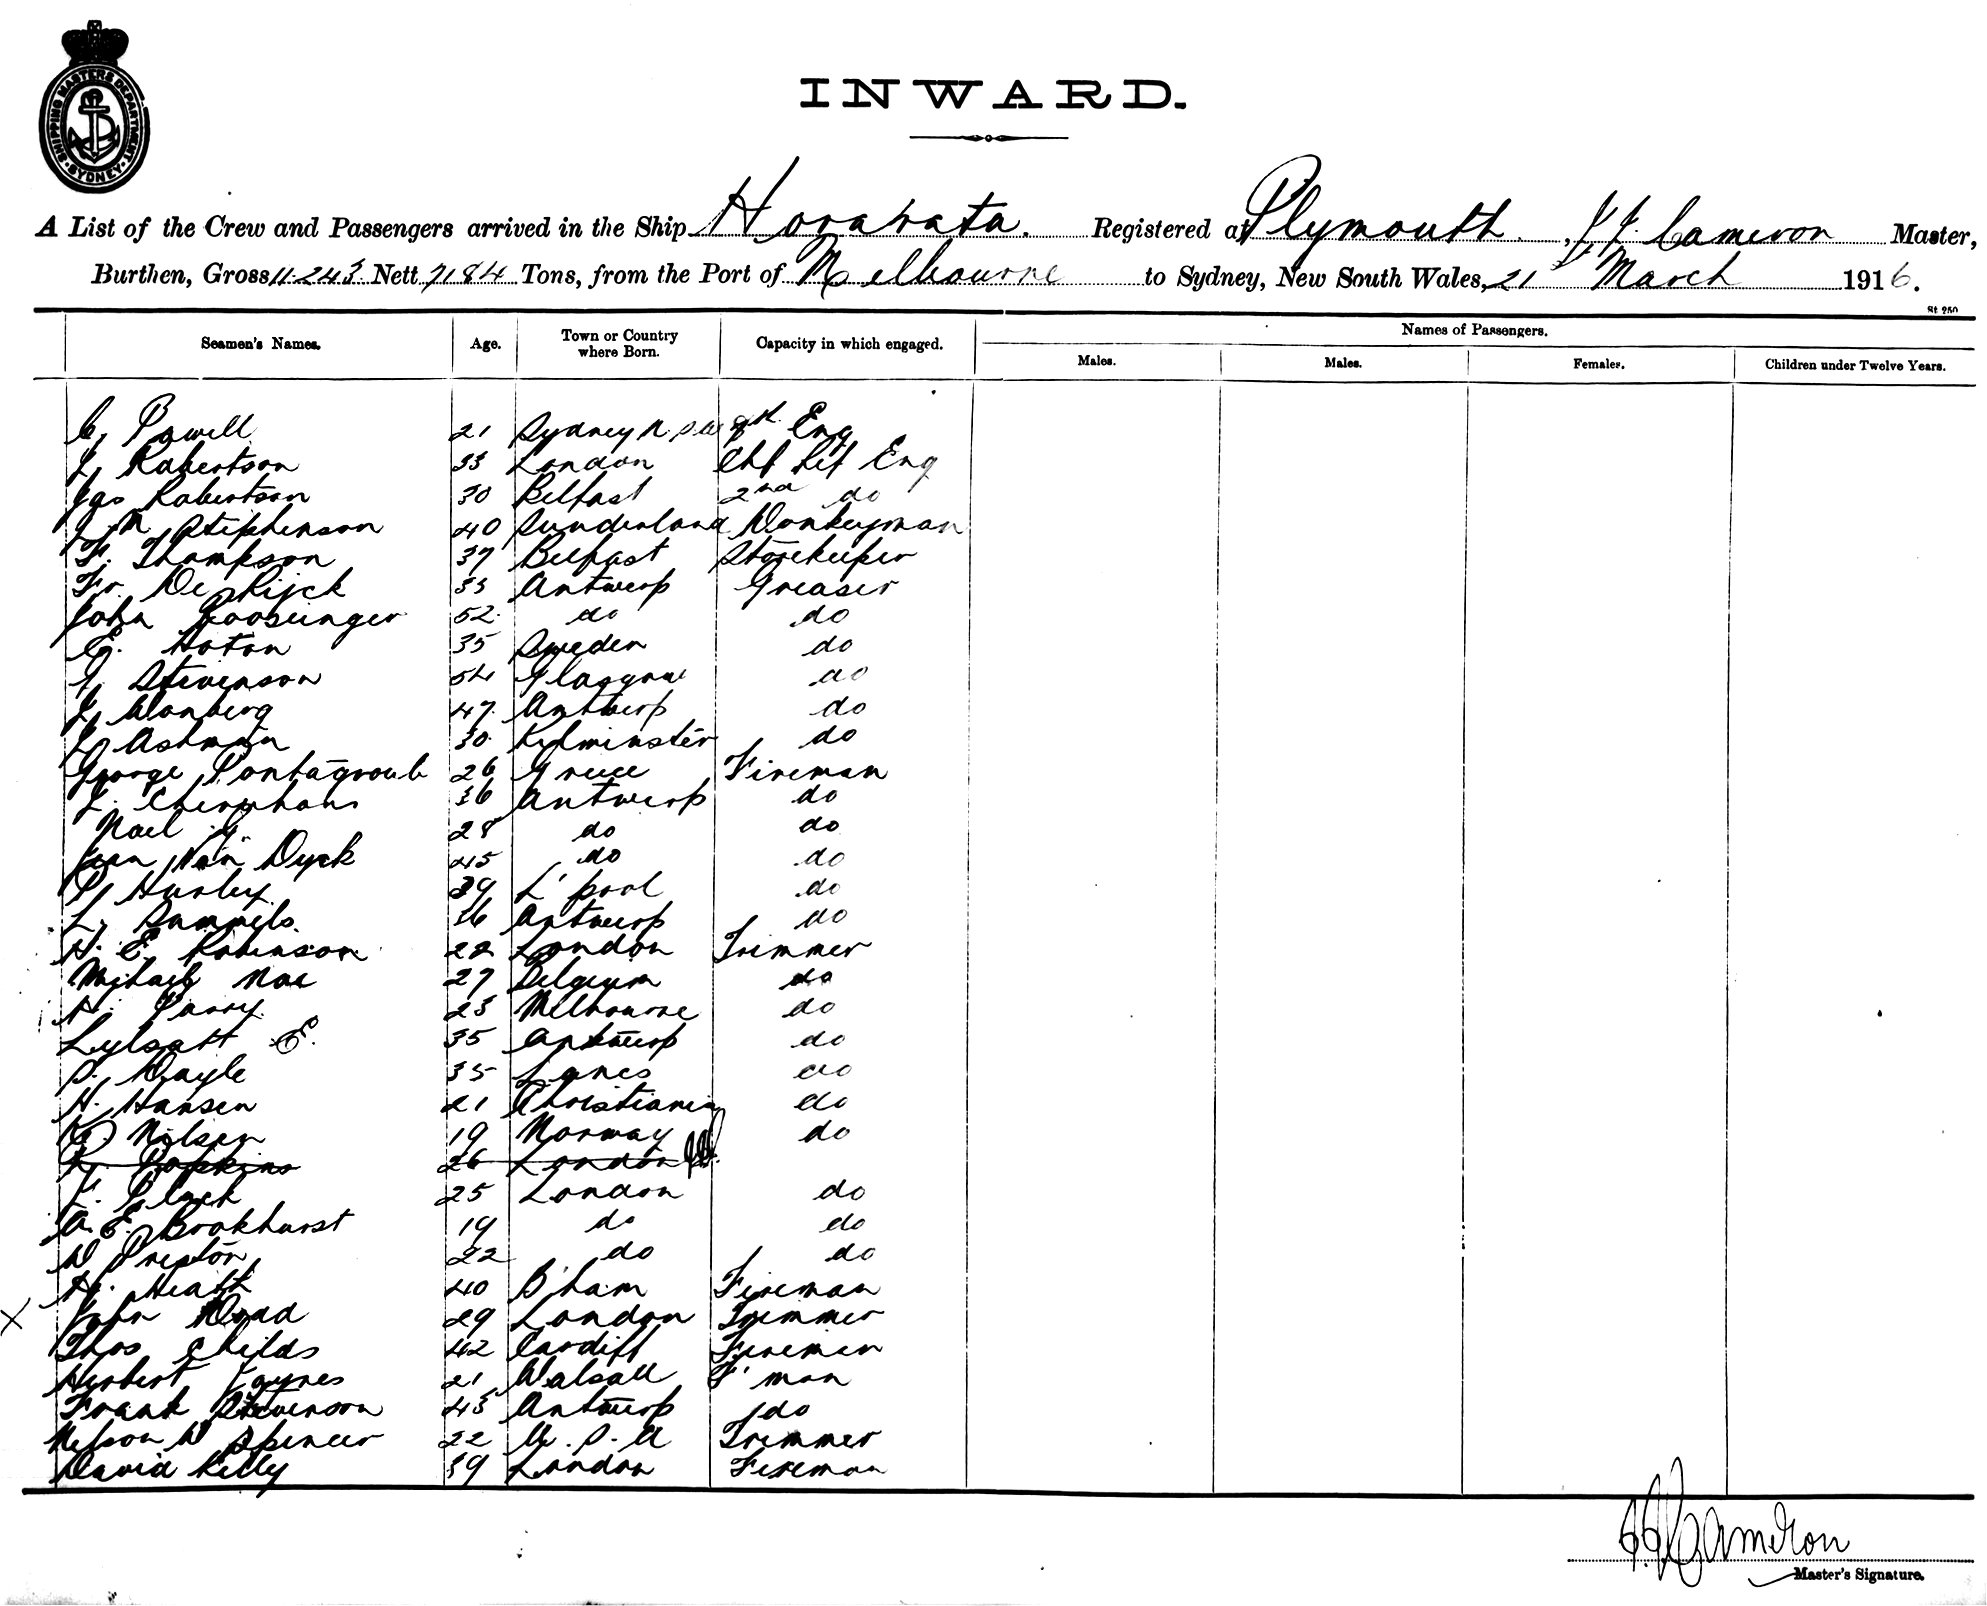 SHIPPING MASTERS DEPARTMENT SYDNEY
INWARD.
A List of the Crew and Passengers arrived in the Ship Horarata. Registered at Plymouth. J. J. Cameron Master,
Burthen, Gross 11.243. Nett 7184 Tons, from the Port of Melbourne to Sydney, New South Wales, 21st March 1916.
Names of Passengers.
Seamen's Names. Age. Town or Country where Born. Capacity in which engaged. Males. Males. Females. Children under Twelve Years.
C. Powell 21 Sydney N.S.W Eng
Robertson 33 London Chf Ref Eng
Jas Robertson 30 Belfast 2nd do
J. M Stephenson 40 Sunderland Donkeyman
F. Thompson 37 Belfast Storekeeper
Fr. De Rijck 33 Antwerp Greaser
John 52 do do
E. 35 Sweden do
Stevenson 54 Glasgow do
47 Antwerp do
Ashman 30 do
George 26 Greece Fireman
36 Antwerp do
28 do do
Jean Van Dyck 45 do do
P. Hurley 39 L'pool do
36 Antwerp do
H. E. Robinson 22 London Trimmer
27 Belgium do
H. Parry 23 Melbourne do
35 Antwerp do
Doyle 35 Lancs do
H. Hansen 21 Christiania do
Nilsen 19 Norway do
Hopkins 26 London
25 London do
A. E. Brokhurst 19 do do
W Preston 22 do do
H. Heath 40 B'ham Fireman
X John 29 London Trimmer
Thos Childs 42 Cardiff Fireman
Herbert Jaynes 21 Walsall F'man
Frank Stevenson 43 Antwerp do
Nelson W Spencer 22 U.S.A Trimmer
David Kelly 39 London Fireman
J J Cameron
Master's Signature.